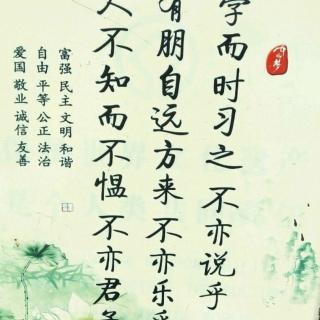 学而时习之 不亦说乎
有朋自远方来 不亦乐乎
人不知而不愠 不亦君子
富强 民主 文明 和谐
自由 平等 公正 法治
爱国 敬业 诚信 友善